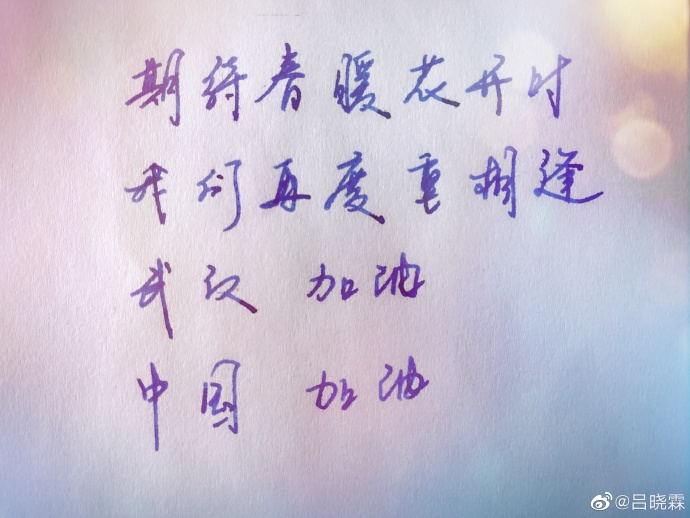 期待春暖花开时
我们再度重相逢
武汉 加油
中国 加油
@吕晓霖